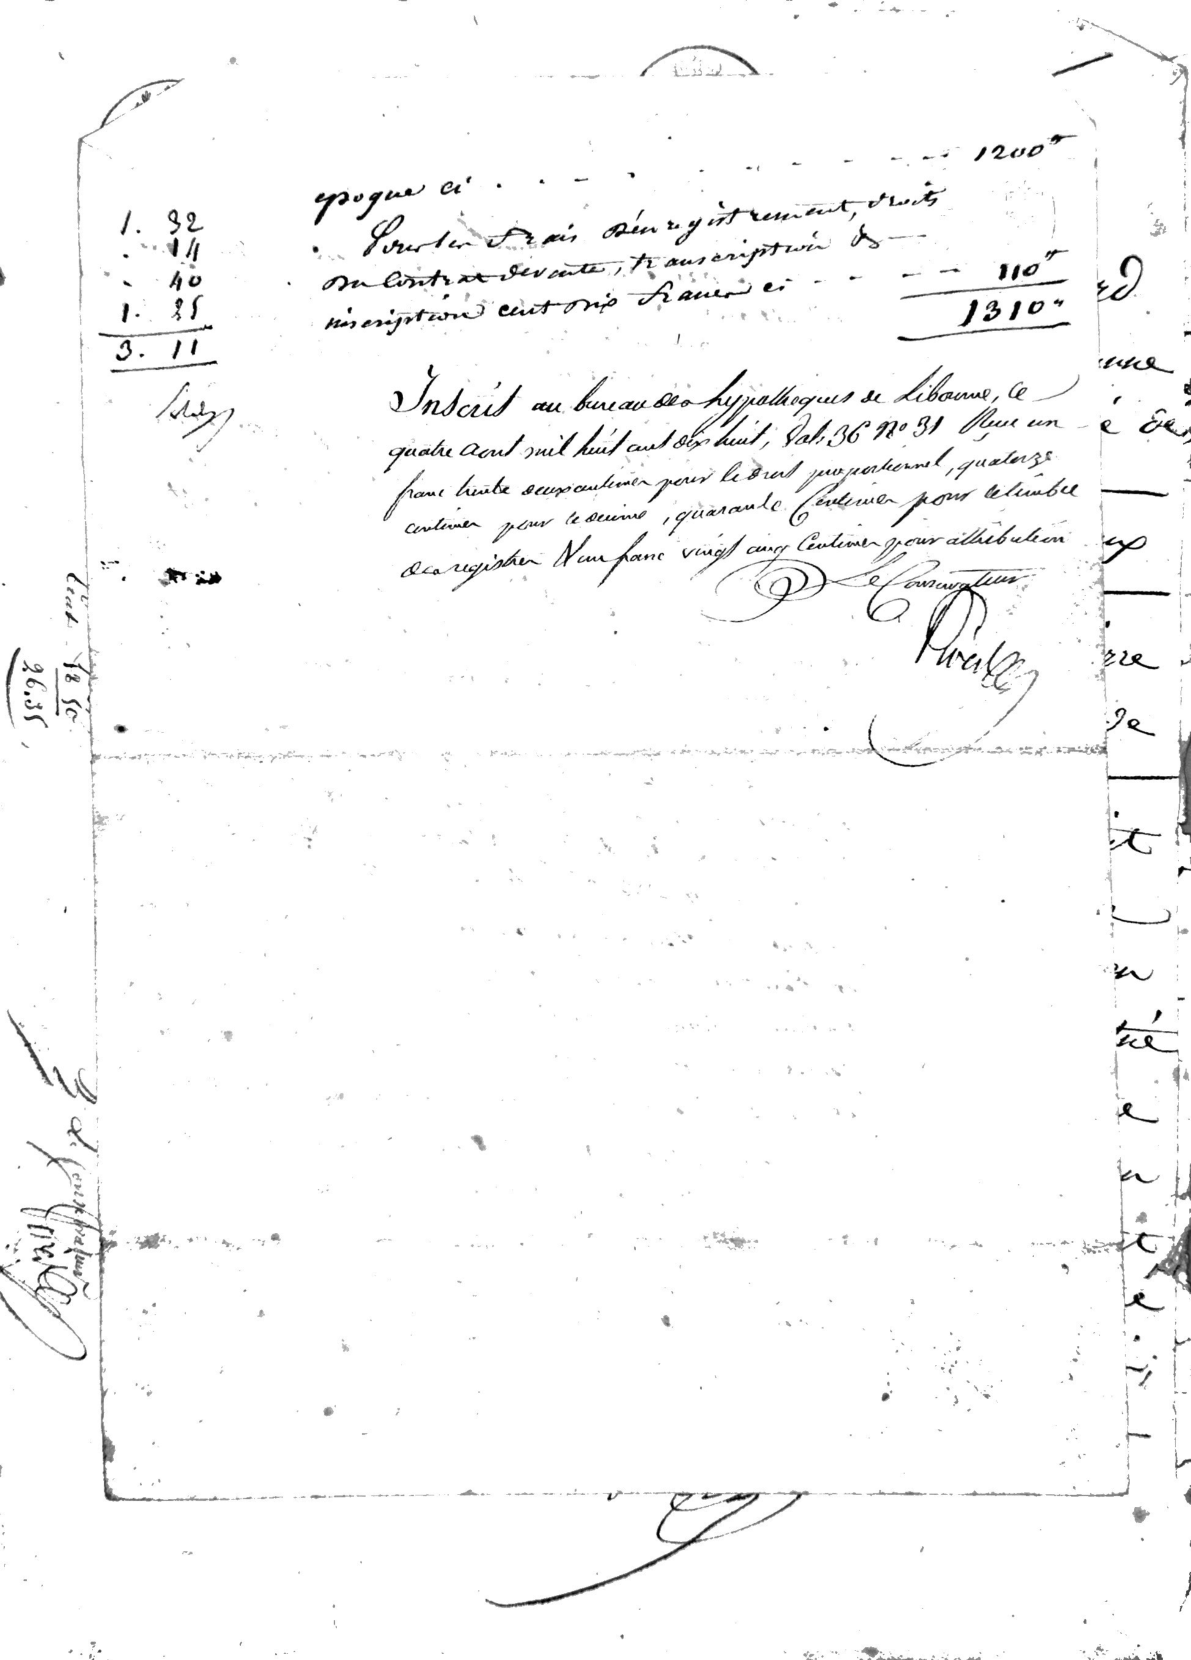 epoque ci . . . . . . . . 1200
Pour les frais d'enregistrement, droits
du Contrat de vente, transcription &
inscription cent dix francs ci - - - - 110
1310
1. 32
. 14
. 40
1. 25
3. 11
Inscrit au bureau des hypothèques de Libourne, ce
quatre aout mil huit cent dix huit, Vol. 36 N° 31 Reçu un
franc trente deux centimes pour le droit proportionnel, quatorze
centimes pour le decime, quarante Centimes pour le timbre
des registres & un franc vingt cinq Centimes pour attribution
Le Conservateur
12 50
26.35
rd
nne
é
ux
rre
de
it
n
né
e
n
t
e